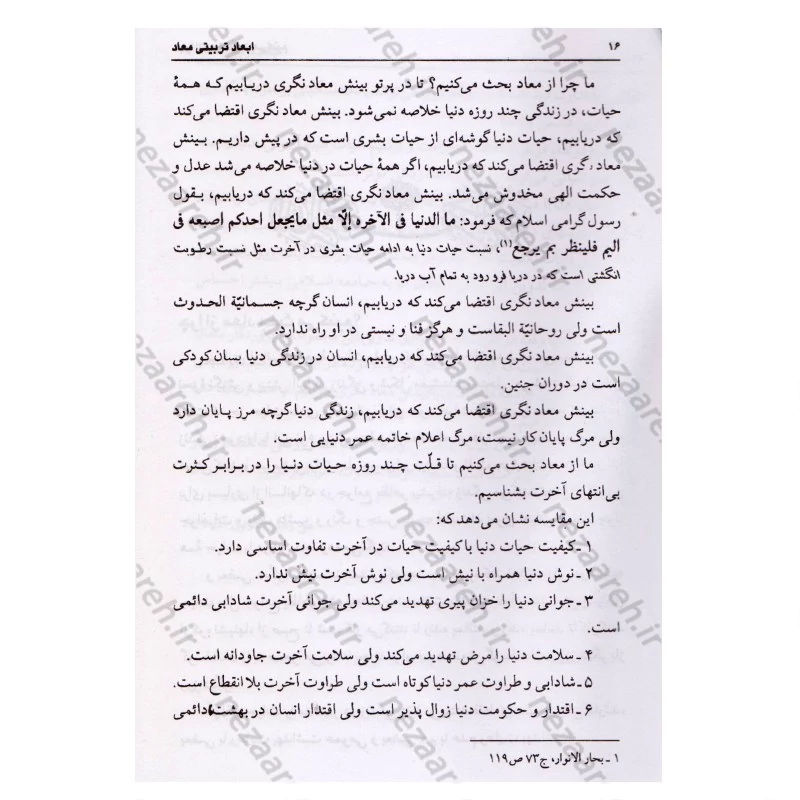 ۱۶ ابعاد تربیتی معاد
ما چرا از معاد بحث می‌کنیم؟ تا در پرتو بینش معاد نگری دریابیم که همهٔ
حیات، در زندگی چند روزه دنیا خلاصه نمی‌شود. بینش معاد نگری اقتضا می‌کند
که دریابیم، حیات دنیا گوشه‌ای از حیات بشری است که در پیش داریم. بینش
معاد نگری اقتضا می‌کند که دریابیم، اگر همهٔ حیات در دنیا خلاصه می‌شد عدل و
حکمت الهی مخدوش می‌شد. بینش معاد نگری اقتضا می‌کند که دریابیم، بقول
رسول گرامی اسلام که فرمود: ما الدنیا فی الآخره إلّا مثل مایجعل احدکم اصبعه فی
الیم فلینظر بم یرجع(۱)، نسبت حیات دنیا به ادامه حیات بشری در آخرت مثل نسبت رطوبت
انگشتی است که در دریا فرو رود به تمام آب دریا.
بینش معاد نگری اقتضا می‌کند که دریابیم، انسان گرچه جسمانیّة الحدوث
است ولی روحانیّة البقاست و هرگز فنا و نیستی در او راه ندارد.
بینش معاد نگری اقتضا می‌کند که دریابیم، انسان در زندگی دنیا بسان کودکی
است در دوران جنین.
بینش معاد نگری اقتضا می‌کند که دریابیم، زندگی دنیا گرچه مرز پایان دارد
ولی مرگ پایان کار نیست، مرگ اعلام خاتمه عمر دنیایی است.
ما از معاد بحث می‌کنیم تا قلّت چند روزه حیات دنیا را در برابر کثرت
بی‌انتهای آخرت بشناسیم.
این مقایسه نشان می‌دهد که:
۱ ـ کیفیت حیات دنیا با کیفیت حیات در آخرت تفاوت اساسی دارد.
۲ ـ نوش دنیا همراه با نیش است ولی نوش آخرت نیش ندارد.
۳ ـ جوانی دنیا را خزان پیری تهدید می‌کند ولی جوانی آخرت شادابی دائمی
است.
۴ ـ سلامت دنیا را مرض تهدید می‌کند ولی سلامت آخرت جاودانه است.
۵ ـ شادابی و طراوت عمر دنیا کوتاه است ولی طراوت آخرت بلا انقطاع است.
۶ ـ اقتدار و حکومت دنیا زوال پذیر است ولی اقتدار انسان در بهشت دائمی
۱ ـ بحار الانوار، ج۷۳ ص۱۱۹
nezaareh.ir